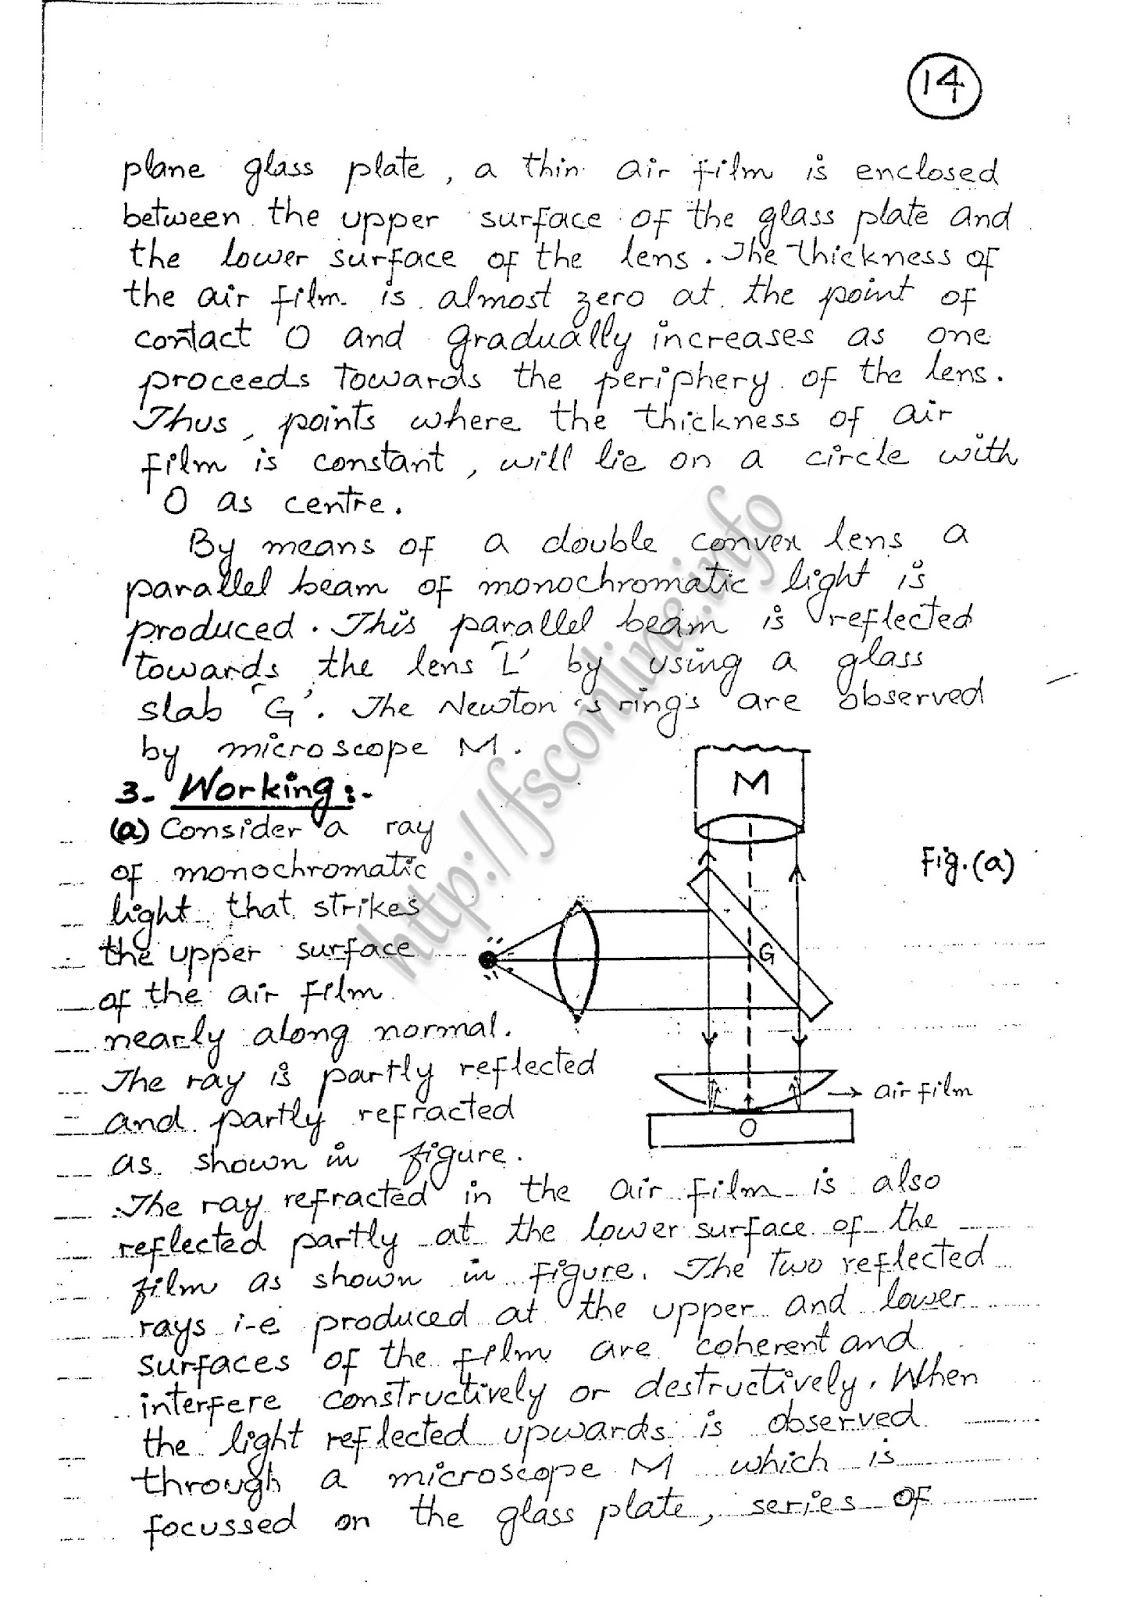 14
plane glass plate, a thin air film is enclosed
between the upper surface of the glass plate and
the lower surface of the lens. The thickness of
the air film is almost zero at the point of
contact O and gradually increases as one
proceeds towards the periphery of the lens.
Thus, points where the thickness of air
film is constant, will lie on a circle with
O as centre.
By means of a double convex lens a
parallel beam of monochromatic light is
produced. This parallel beam is reflected
towards the lens 'L' by using a glass
slab 'G'. The Newton's rings are observed
by microscope M.
3- Working:-
(a) Consider a ray
of monochromatic
light that strikes
the upper surface
of the air film
nearly along normal.
The ray is partly reflected
and partly refracted
as shown in figure.
M
Fig.(a)
G
air film
O
The ray refracted in the air film is also
reflected partly at the lower surface of the
film as shown in figure. The two reflected
rays i-e produced at the upper and lower
surfaces of the film are coherent and
interfere constructively or destructively. When
the light reflected upwards is observed
through a microscope M which is
focussed on the glass plate, series of
http://fsconline.info